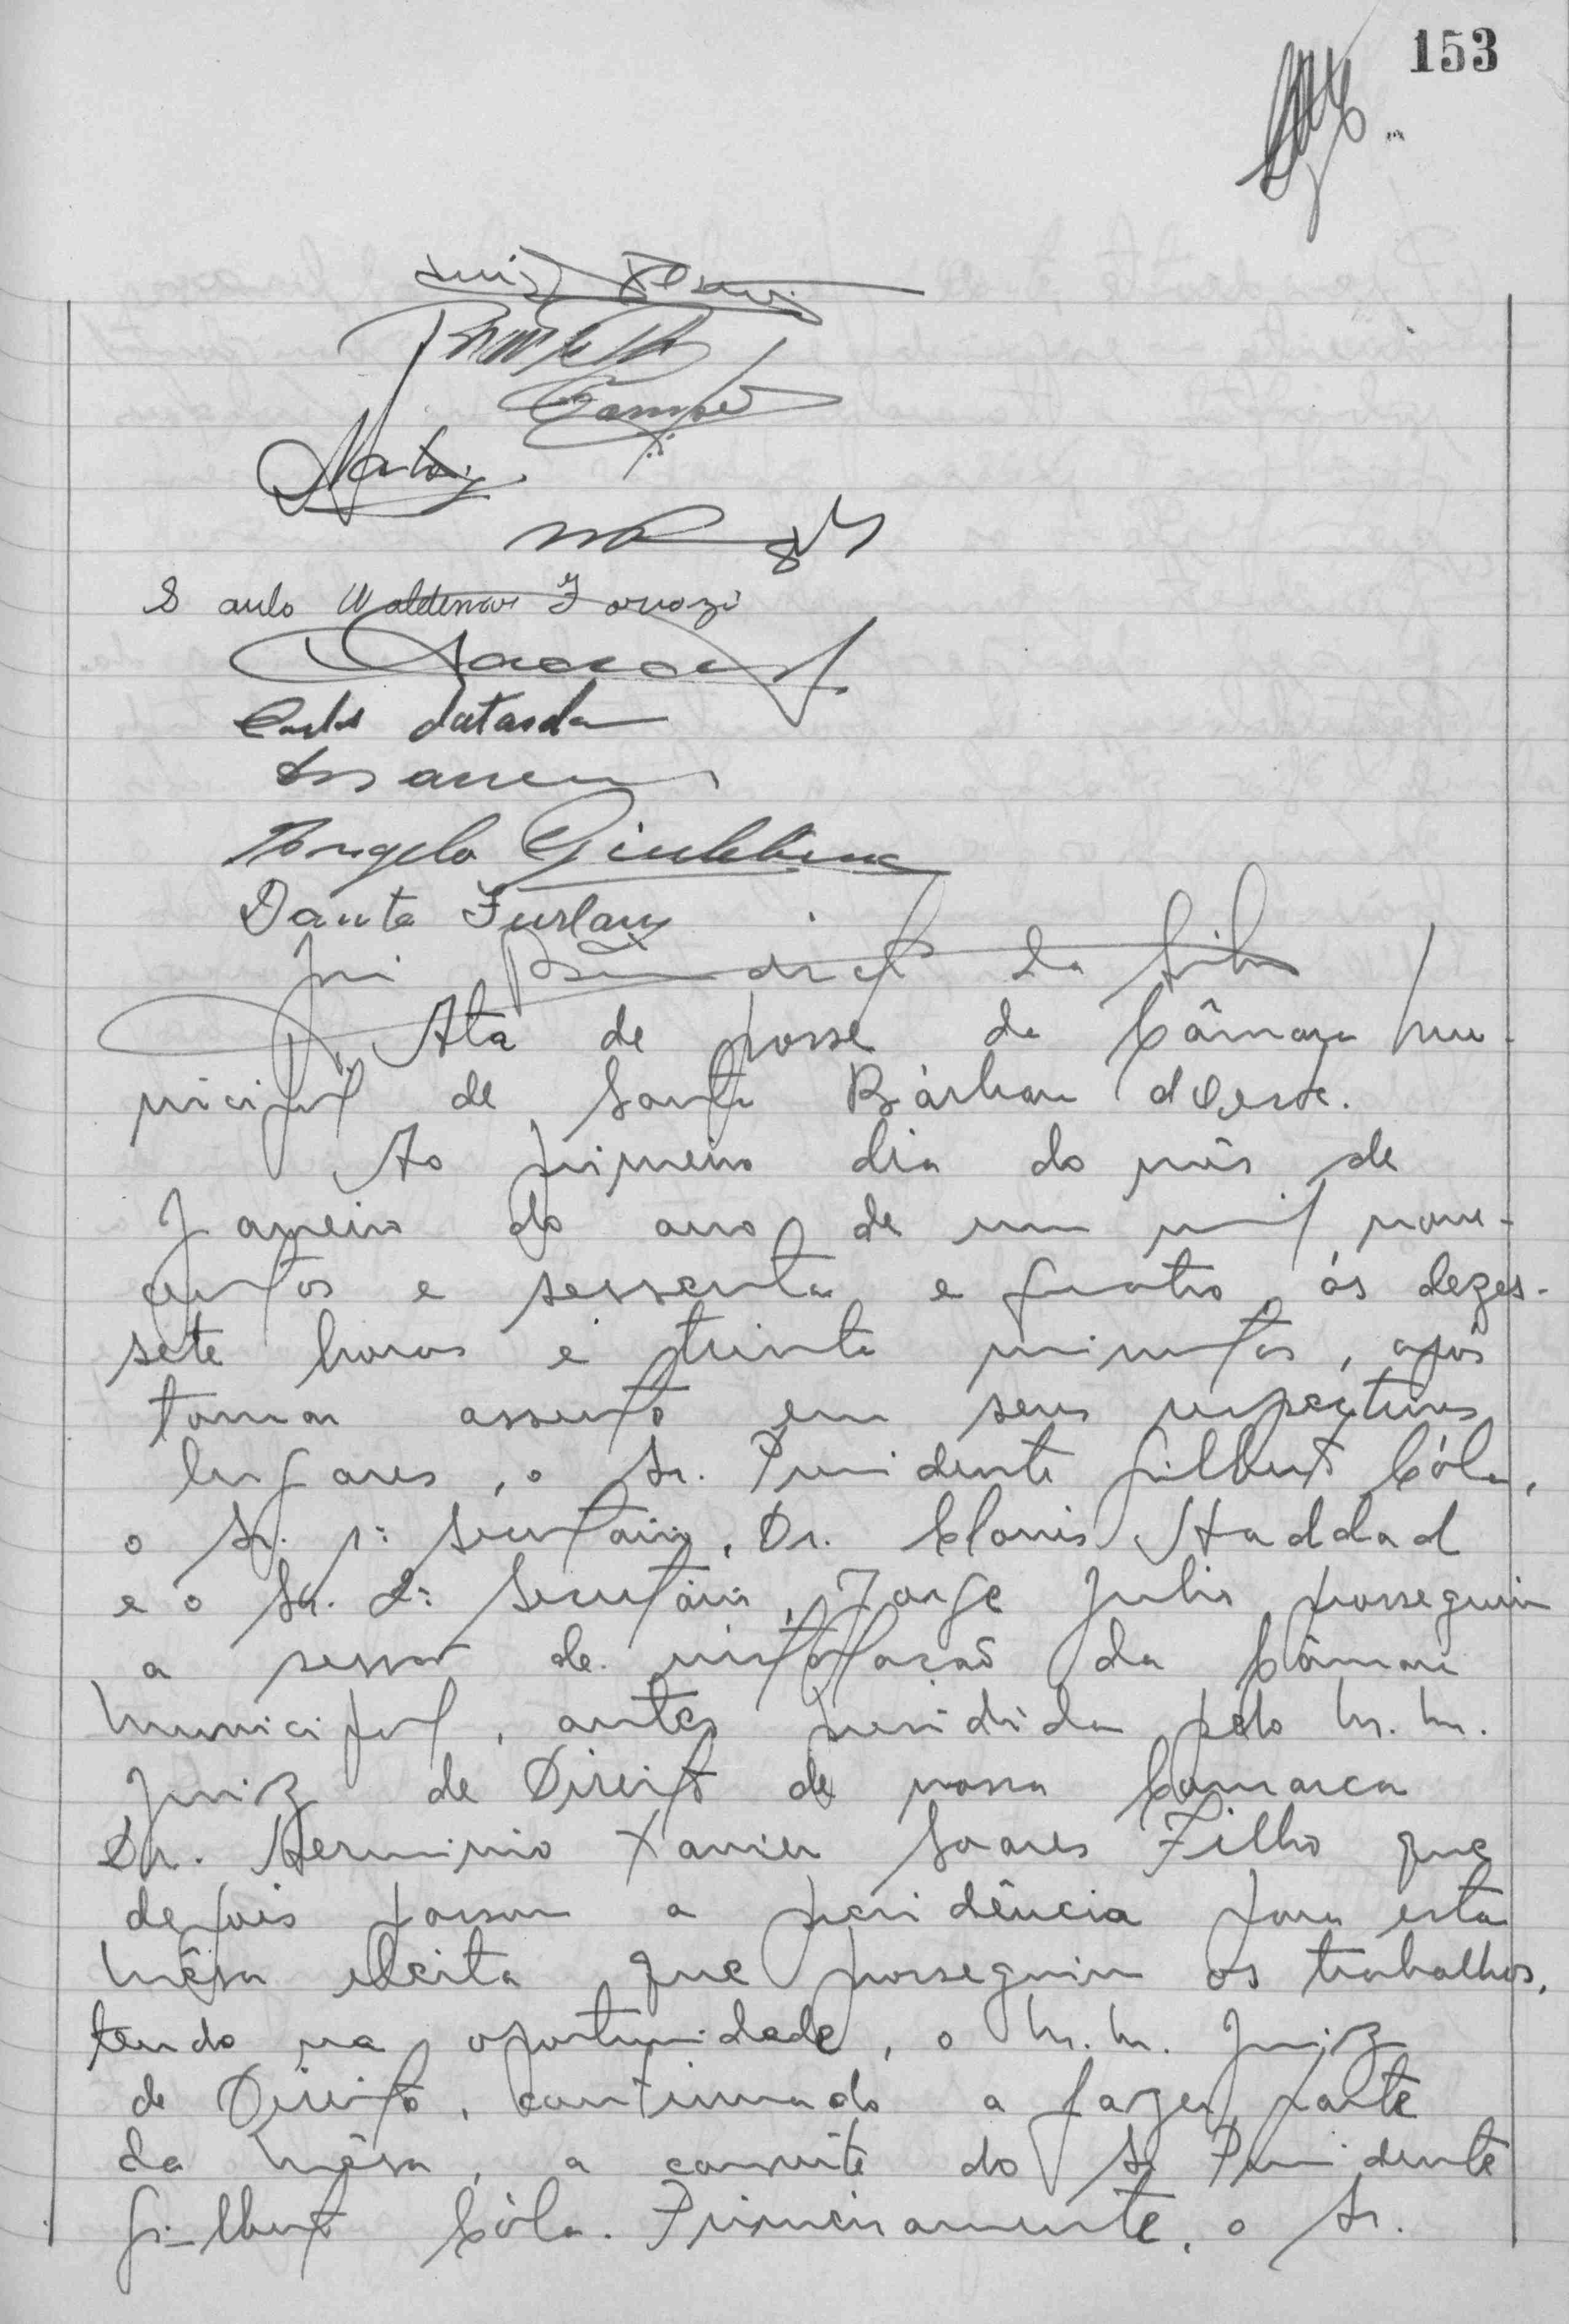 153
Saulo Waldemar Fornazi
Angelo Giubbina
Dante Furlan
José Benedicto da Silva
Ata de posse da Câmara Mu-
nicipal de Santa Bárbara d'Oeste.
Ao primeiro dia do mês de
Janeiro do ano de um mil nove-
centos e sessenta e quatro, ás dezes-
sete horas e trinta minutos, após
tomar assento em seus respectivos
lugares, o Sr. Presidente Gilberto Cóla,
o Sr. 1º Secretário, Dr. Clovis Haddad
e o Sr. 2º Secretário, Jorge Julio prosseguiu
a sessão de instalação da Câmara
Municipal, antes presidida pelo M. M.
Juiz de Direito de nossa Comarca
Dr. Herminio Xavier Soares Filho que
depois passou a presidência para esta
Mêsa eleita que prosseguiu os trabalhos,
tendo na oportunidade, o M. M. Juiz
de Direito, continuado a fazer parte
da Mêsa, a convite do Sr Presidente
Gilberto Cóla. Primeiramente, o Sr.